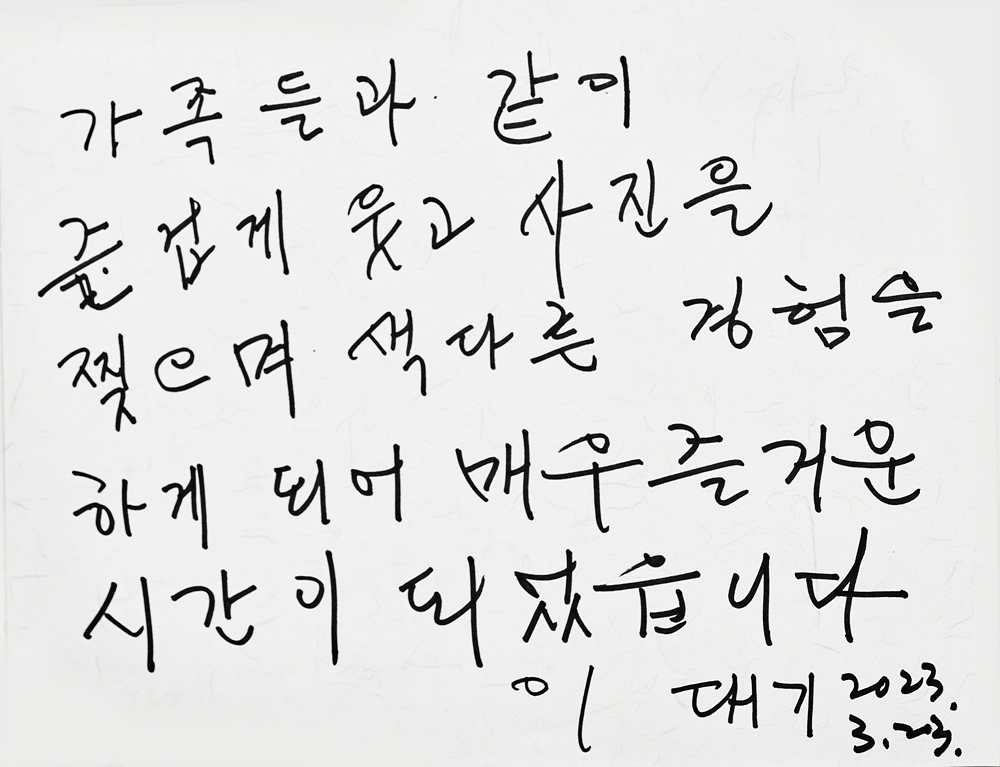 가족들과 같이
즐겁게 웃고 사진을
찢으며 색다른 경험을
하게 되어 매우 즐거운
시간이 되었읍니다
이 대기 2023.
3.23.